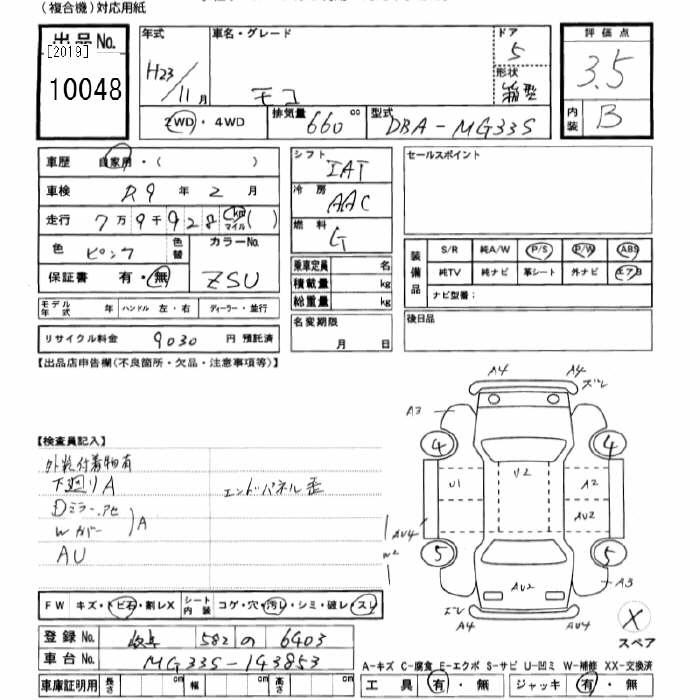 (複合機)対応用紙
出品No. [2019] 10048
年式 H23/11月
車名・グレード モコ
ドア 5
形状 箱型
評価点 3.5
内装 B
2WD・4WD
排気量 660 cc
型式 DBA-MG33S
車歴 自家用・( )
車検 R9年2月
走行 7万9千928 km マイル ( )
色 ピンク 色替
カラーNo. ZSU
保証書 有・無
モデル年式 年 ハンドル 左・右 ディーラー・並行
リサイクル料金 9030 円 預託済
シフト IAT
冷房 AAC
燃料 G
乗車定員 名
積載量 kg
総重量 kg
名変期限 月 日
セールスポイント
装備品 S/R 純A/W P/S P/W ABS
純TV 純ナビ 革シート 外ナビ エアB
ナビ型番:
後日品
【出品店申告欄(不良箇所・欠品・注意事項等)】
【検査員記入】
外装付着物有
下廻りA
Dミラー
Wカバー A
AU
エンドパネル歪
A4 A4 ズレ
A3
4 4
U1 U2 A2
AU2
AU4
W2
5 5
AU2 A3
ズレ A4 A4
X
スペア
FW キズ・トビ石・割レX シート内装 コゲ・穴・汚レ・シミ・破レ・スレ
登録No. 岐阜 582 の 6403
車台No. MG33S-143853
車庫証明用 長さ cm 幅 cm 高さ cm
A-キズ C-腐食 E-エクボ S-サビ U-凹ミ W-補修 XX-交換済
工具 有・無 ジャッキ 有・無